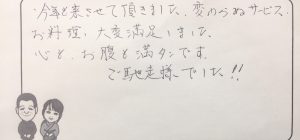 今年も来させて頂きました。変わらぬサービス、
お料理、大変満足しました。
心も、お腹も満タンです。
ご馳走様でした!!